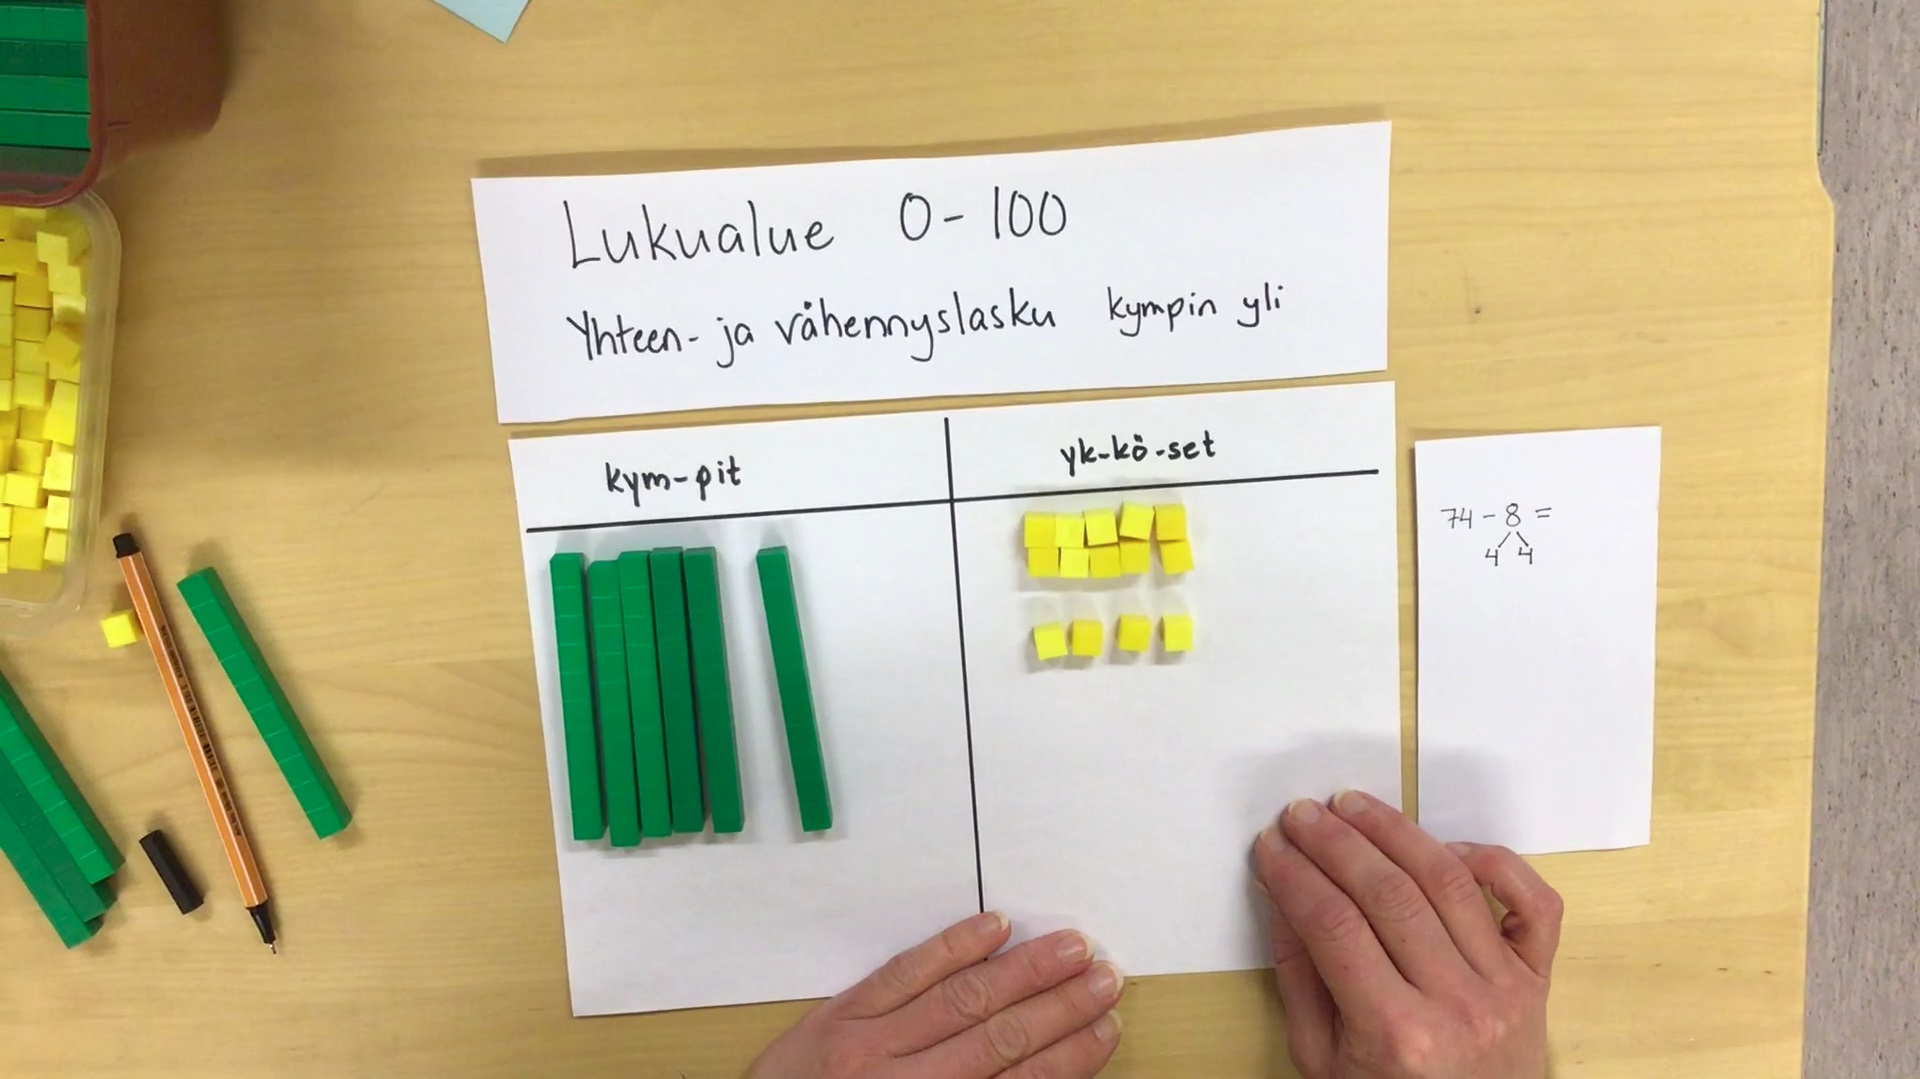 Lukualue 0-100
Yhteen- ja vähennyslasku kympin yli
kym-pit
yk-kö-set
74-8=
4 4